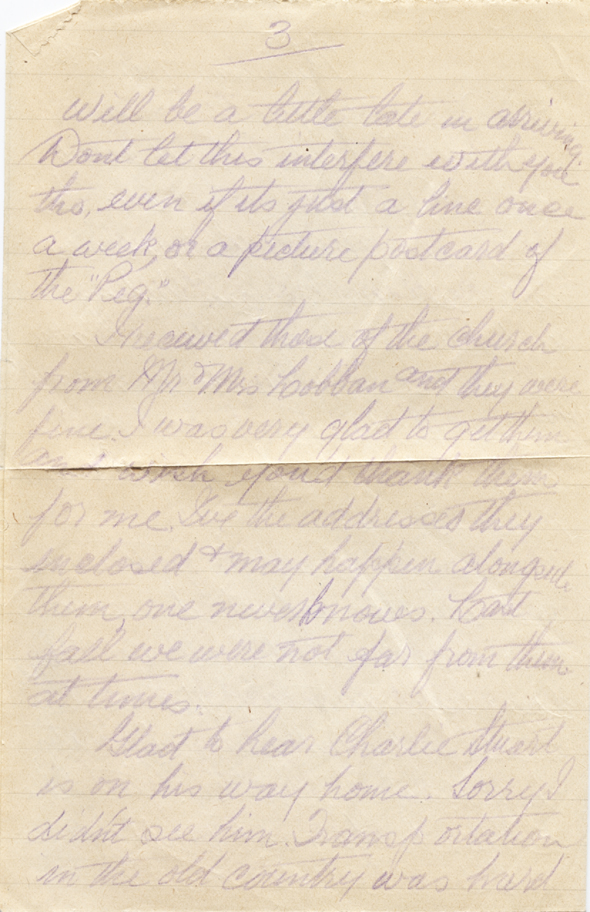 3
will be a little late in arriving.
Dont let this interfere with you
tho, even if its just a line once
a week, or a picture postcard of
the "Peg."
I received those of the church
from Mr & Mrs Cobban and they were
fine. I was very glad to get them
and wish you'd thank them
for me. I've the addresses they
enclosed & may happen alongside
them, one never knows. Last
fall we were not far from them
at times.
Glad to hear Charlie Stuart
is on his way home. Sorry I
didn't see him. Transportation
in the old country was hard